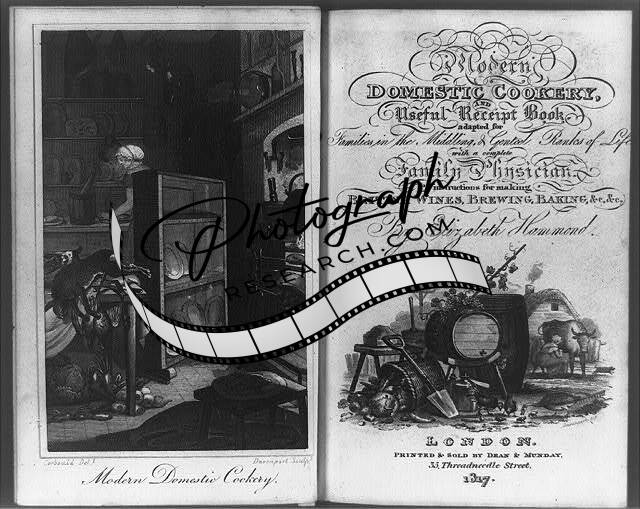 Corbould Del.
Davenport Sculp.
Modern Domestic Cookery.
Modern
DOMESTIC COOKERY,
AND
Useful Receipt Book
adapted for
Families, in the Middling, & Genteel Ranks of Life
with a complete
Family Physician,
instructions for making
WINES, BREWING, BAKING, &c. &c.
By Elizabeth Hammond.
LONDON.
PRINTED & SOLD BY DEAN & MUNDAY,
35, Threadneedle Street,
1817.
Photograph
RESEARCH.COM